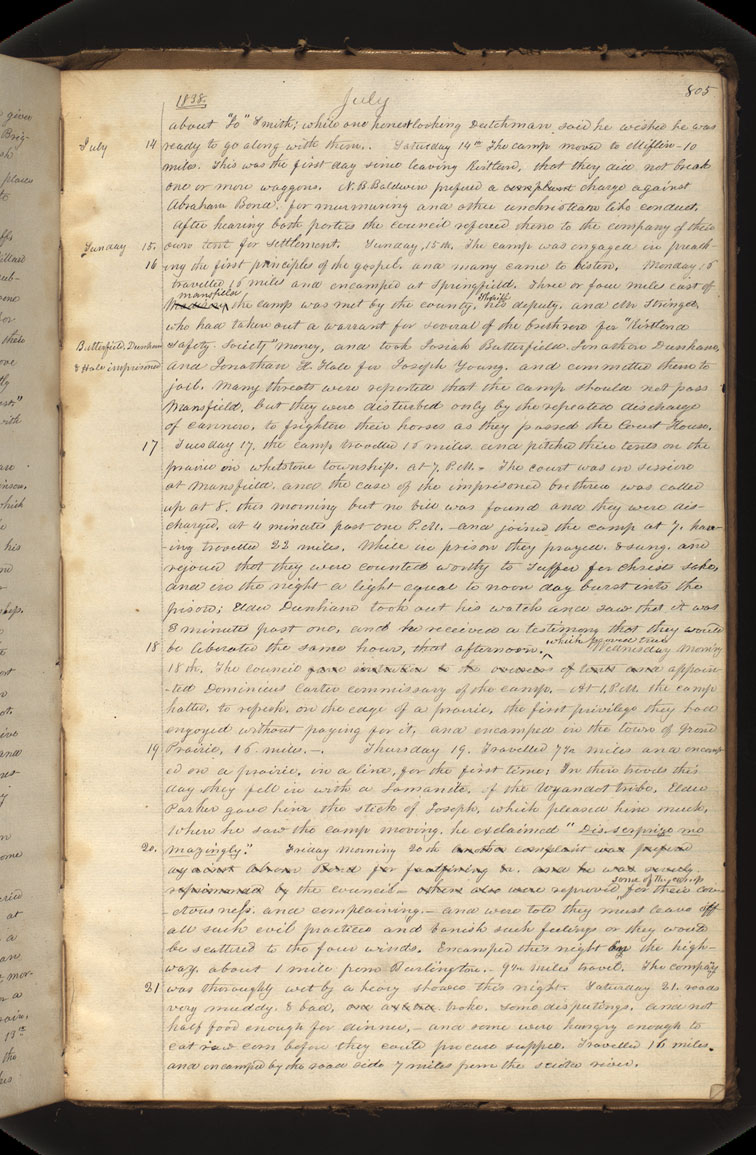 1838. July 805
about "Jo" Smith; while one honest looking Dutchman said he wished he was
July 14 ready to go along with them. Saturday 14th The camp moved to Mifflin 10
miles. This was the first day since leaving Kirtland, that they did not break
one or more waggons. N. B. Baldwin prefered a complaint charge against
Abraham Bond, for murmuring and other unchristian like conduct.
After hearing both parties the council refered them to the company of their
Sunday 15. own tent for settlement. Sunday, 15th. The camp was engaged in preach-
16 ing the first principles of the gospel. and many came to listen. Monday 16
travelled 15 miles and encamped at Springfield. Three or four miles east of
mansfield Sheriff
the camp was met by the county, his deputy. and Mr Stringer,
who had taken out a warrant for several of the brethren for "Kirtland
Butterfield, Dunham Safety Society" money, and took Josiah Butterfield. Jonathan Dunham,
& Hale imprisoned and Jonathan H. Hale for Joseph Young. and committed them to
jail. Many threats were reported that the camp should not pass
Mansfield, but they were disturbed only by the repeated discharge
of cannon, to frighten their horses as they passed the Court House.
17 Tuesday 17, the camp travelled 15 miles and pitched their tents on the
prairie in whetstone township. at 7. P.M. - The court was in session
at Mansfield. and the case of the imprisoned brethren was called
up at 8. this morning but no bill was found and they were dis-
charged, at 4 minutes past one P.M. - and joined the camp at 7. hav-
ing travelled 22 miles. While in prison they prayed. & sung. and
rejoiced that they were counted worthy to suffer for christ sake,
and in the night a light equal to noon day burst into the
prison; Elder Dunham took out his watch and saw that it was
3 minutes past one, and he received a testimony that they would
which proved true
18 be liberated the same hour, that afternoon. ^ Wednesday morning
18th. The council gave instruction to the overseers of tents and appoin-
ted Dominicus Carter commissary of the camp. - At 1. P.M. the camp
halted, to refresh, on the edge of a prairie, the first privilege they had
enjoyed without paying for it, and encamped in the town of Grand
19 Prairie, 16. miles. -. Thursday 19. Travelled 7½ miles and encamp-
ed on a prairie, in a line, for the first time; In their travels this
day they fell in with a Lamanite. of the Wyandot tribe. Elder
Parker gave him the stick of Joseph, which pleased him much.
Where he saw the camp moving. he exclaimed "Dis. serprize me
20. mazingly." Friday morning 20th another complaint was prefered
against Abram Bond for faultfinding &c. and he was severely
some of the camp
reprimanded by the council - others also were reproved for their cov-
etousness. and complaining. - and were told they must leave off
all such evil practices and banish such feelings or they would
be scattered to the four winds. Encamped this night by the high-
way. about 1 mile from Burlington. - 9½ miles travel. The company
21 was thoroughly wet by a heavy shower this night. Saturday 21. roads
very muddy. & bad, broke. some disputings, and not
half food enough for dinner, - and some were hungry enough to
eat raw corn before they could procure supper. Travelled 16 miles.
and encamped by the road side 7 miles from the scioto river.